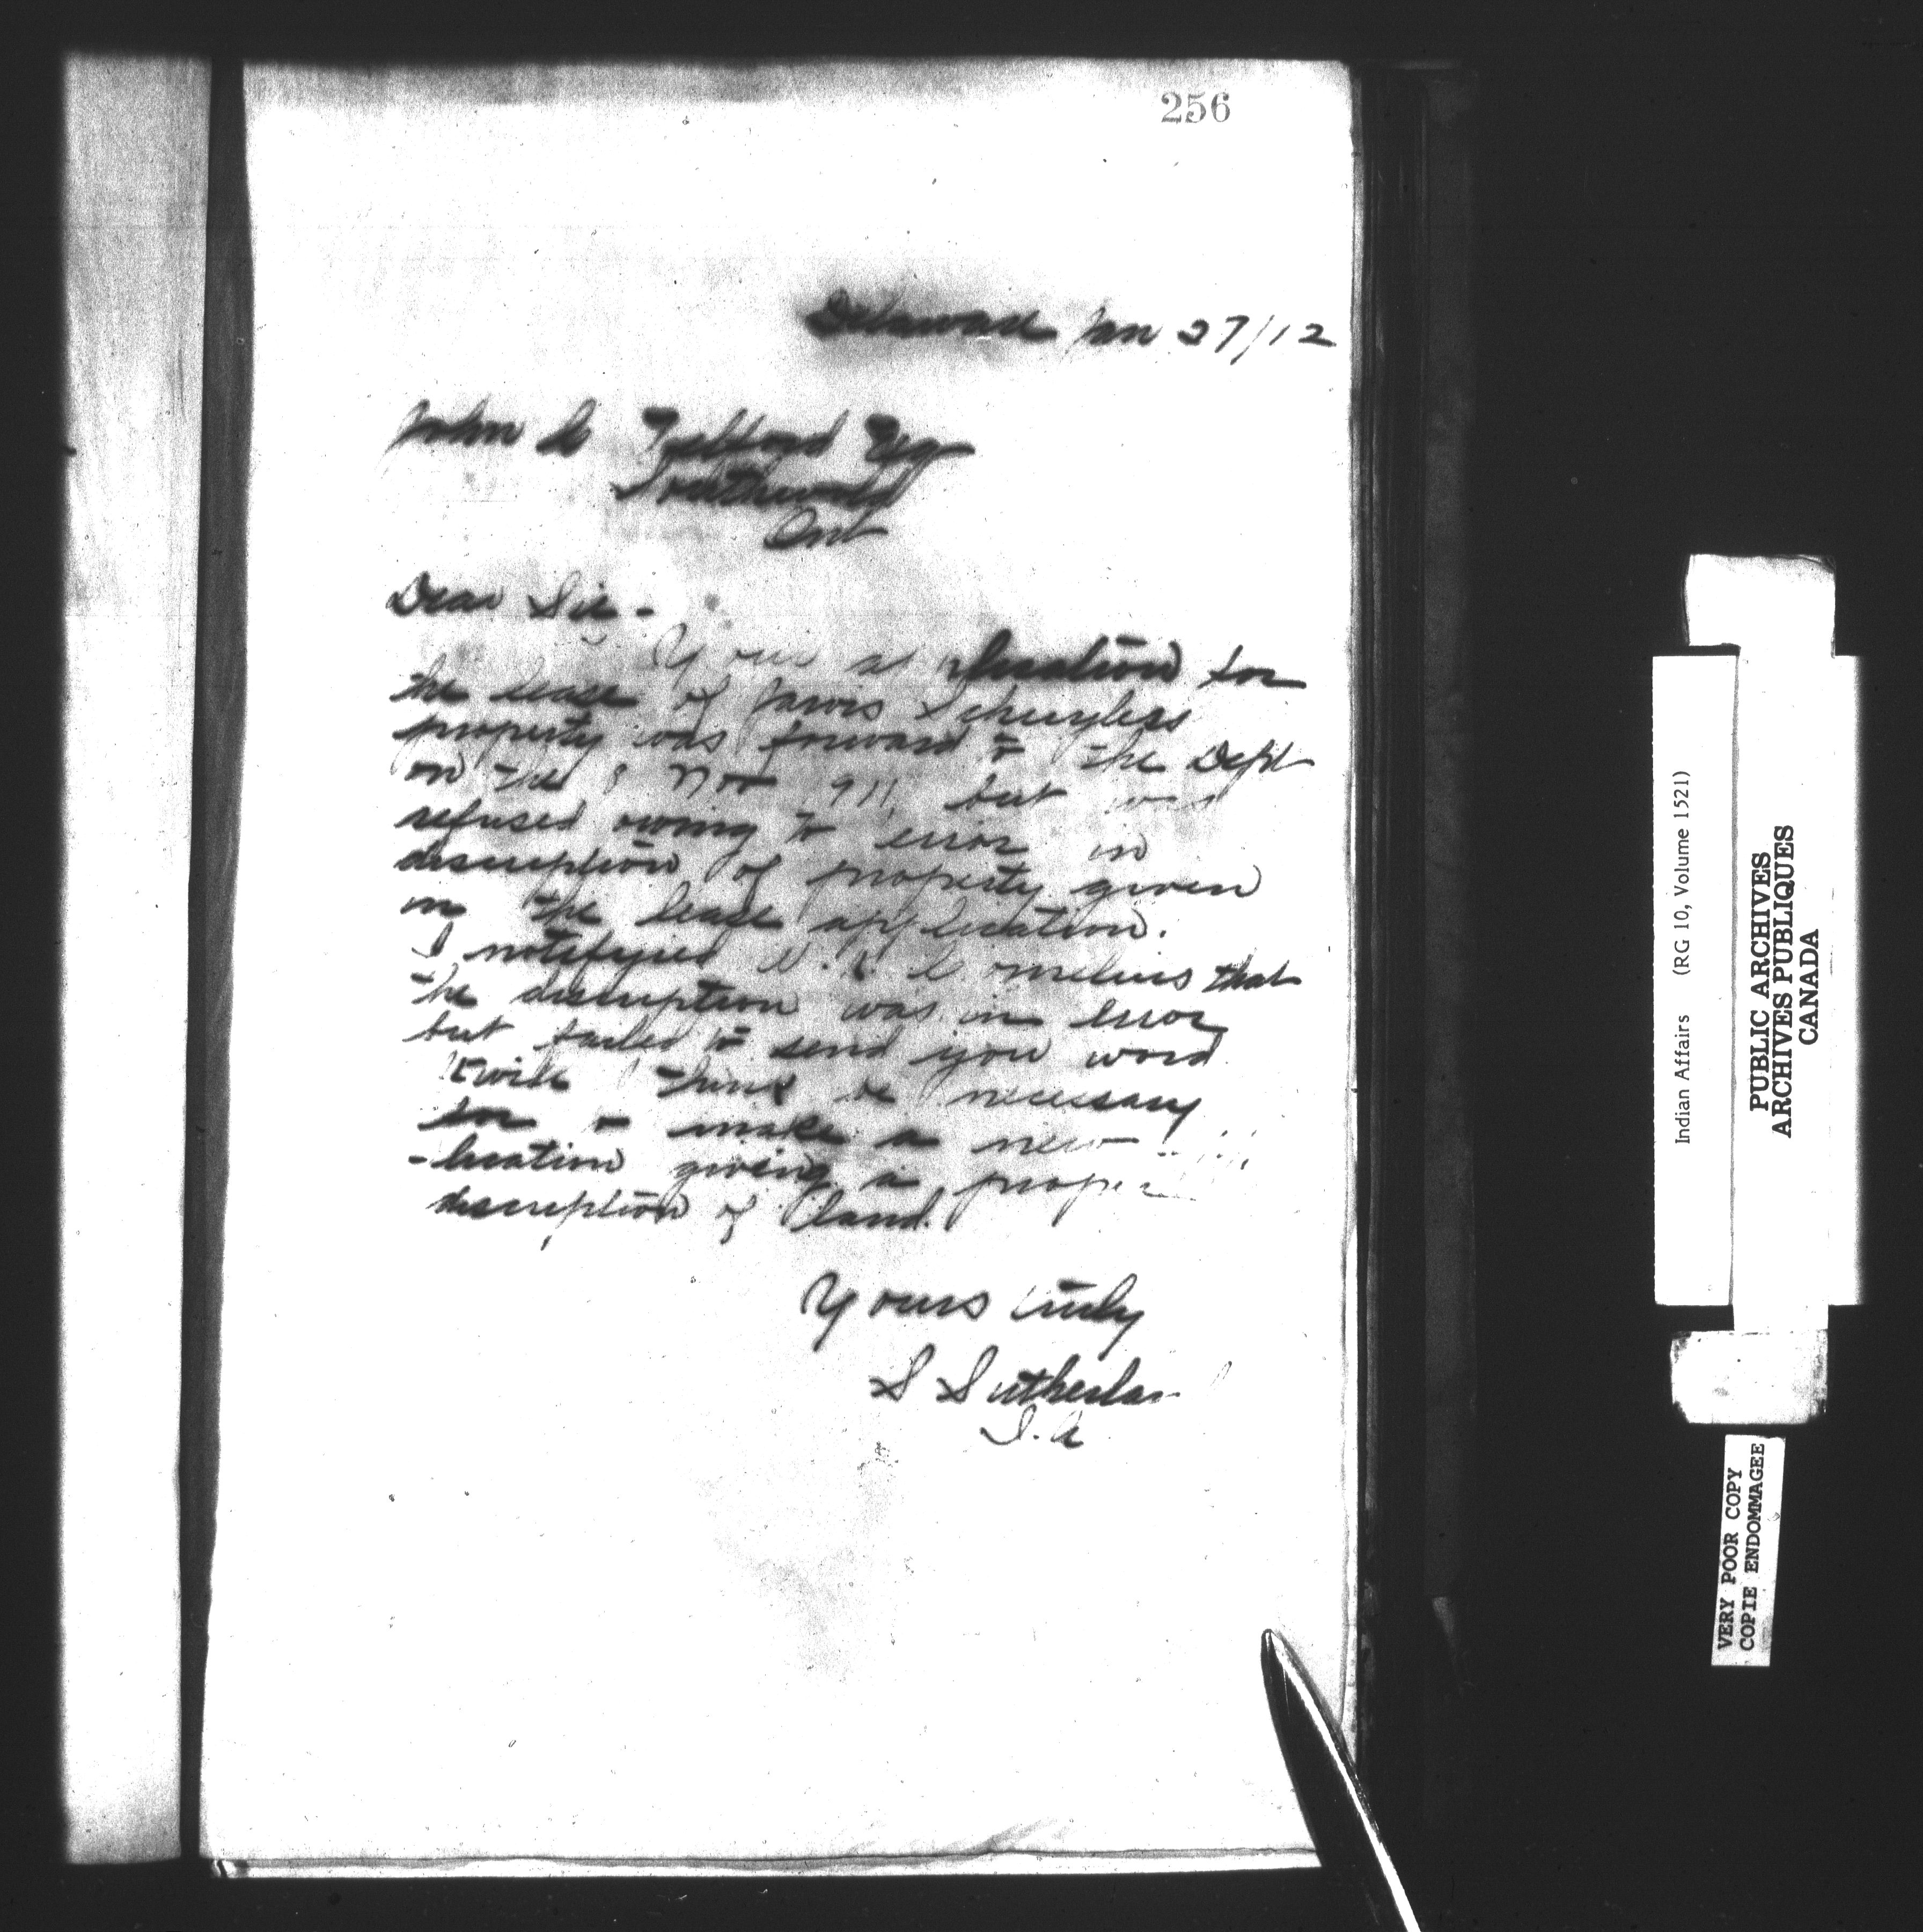 256
Delaware Jan 27/12
John C Esq
Southwold
Ont
Dear Sir -
Your lication for
the lease of Jarvis Schuylers
property was forward to the Dept
on the 8 Nov 911 but was
refused owing to error in
discription of property given
in the lease application.
I notifyied that
the discription was in error
but failed to send you word
It will I think be necessary
for to make a new
-lication giving a proper
discription of land.
Yours truly
S Sutherlan
I. A
Indian Affairs (RG 10, Volume 1521)
PUBLIC ARCHIVES
ARCHIVES PUBLIQUES
CANADA
VERY POOR COPY
COPIE ENDOMMAGEE